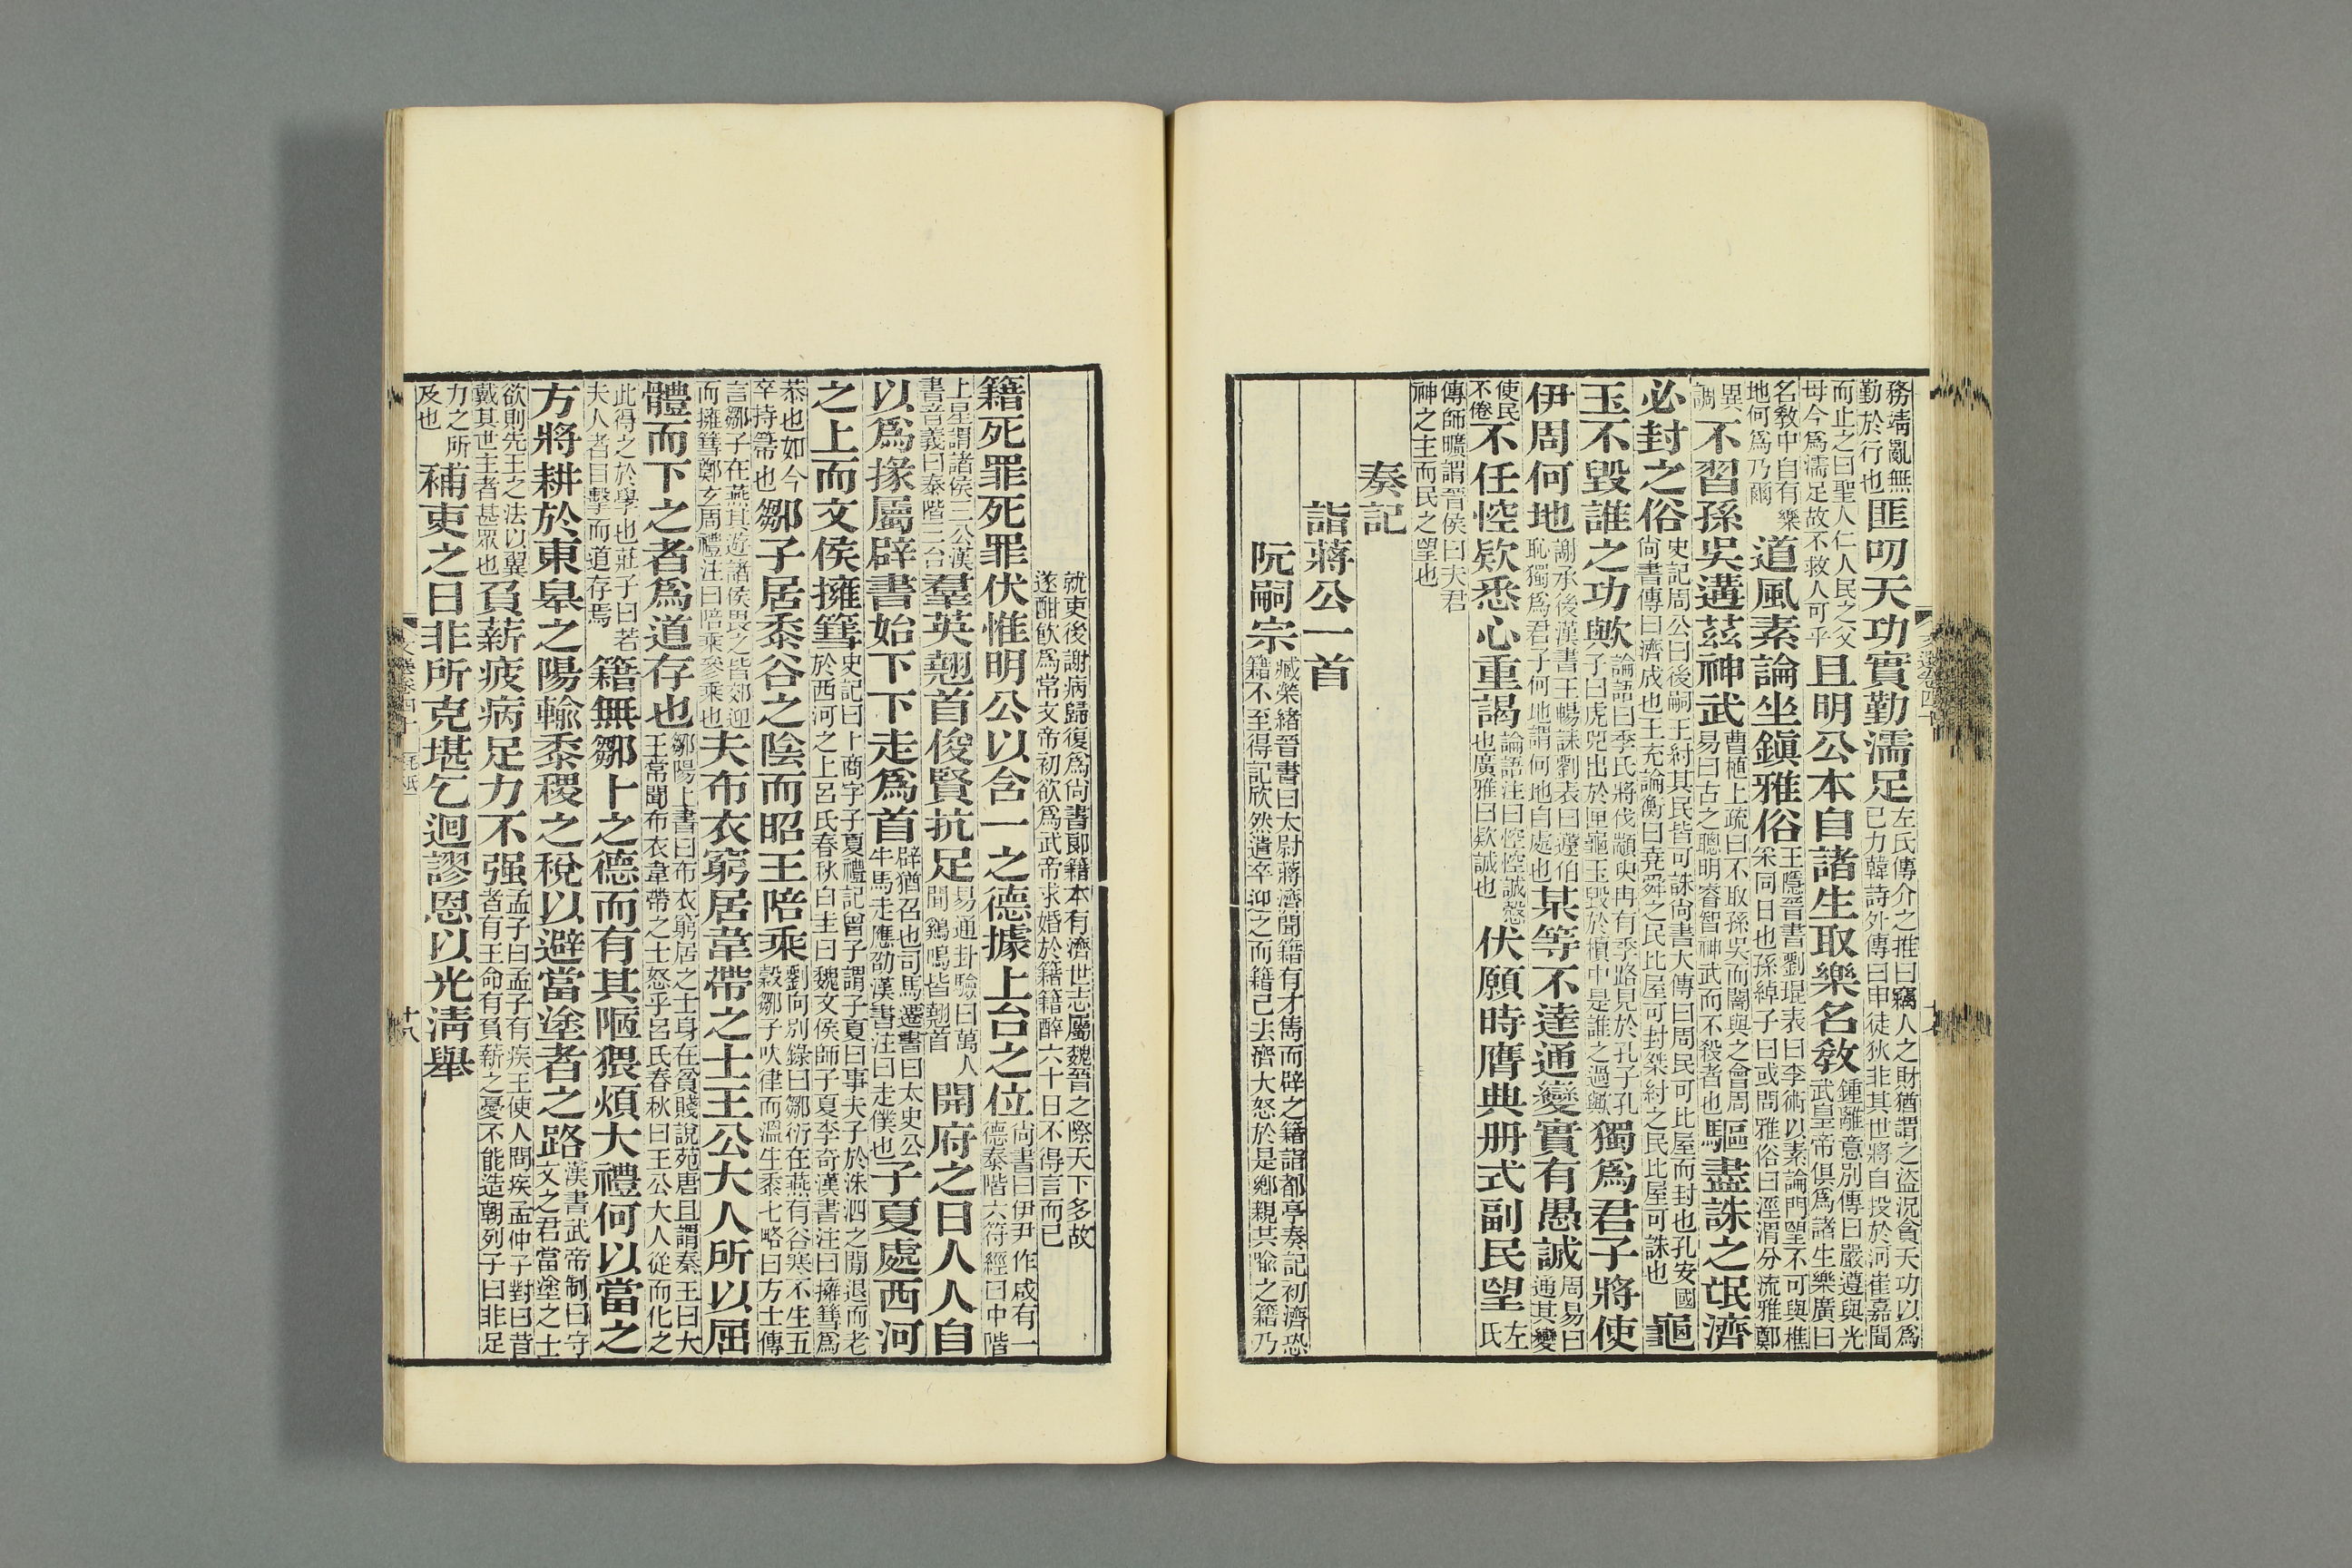 務靖亂無勤於行也匪叨天功實勤濡足左氏傳介之推曰竊人之財猶謂之盜況貪天功以爲己力韓詩外傳曰申徒狄非其世將自投於河崔嘉聞
而止之曰聖人仁人民之父母今爲濡足故不救人可乎且明公本自諸生取樂名敎鍾離意別傳曰嚴遵與光武皇帝俱爲諸生樂廣曰
名敎中自有樂地何爲乃爾道風素論坐鎭雅俗王隱晉書劉琨表曰李術以素論門望不可與樵采同日也孫綽子曰或問雅俗曰涇渭分流雅鄭
異調不習孫吳遘茲神武曹植上疏曰不取孫吳而闇與之會周易曰古之聰明睿智神武而不殺者也驅盡誅之氓濟
必封之俗史記周公曰後嗣王紂其民皆可誅尚書大傳曰周民可比屋而封也孔安國尚書傳曰濟成也王充論衡曰堯舜之民比屋可封桀紂之民比屋可誅也龜
玉不毀誰之功歟論語曰季氏將伐顓臾冉有季路見於孔子孔子曰虎兕出於匣龜玉毀於櫝中是誰之過歟獨爲君子將使
伊周何地謝承後漢書王暢誄劉表曰蘧伯恥獨爲君子何地謂何地自處也某等不達通變實有愚誠周易曰通其變
使民不倦不任悾欵悉心重謁論語注曰悾悾誠慤也廣雅曰欵誠也伏願時膺典册式副民望左氏
傳師曠謂晉侯曰夫君神之主而民之望也
奏記
詣蔣公一首
阮嗣宗臧榮緒晉書曰太尉蔣濟聞籍有才雋而辟之籍詣都亭奏記初濟恐籍不至得記欣然遣卒迎之而籍已去濟大怒於是鄉親共喩之籍乃
就吏後謝病歸復爲尚書郎籍本有濟世志屬魏晉之際天下多故遂酣飮爲常文帝初欲爲武帝求婚於籍籍醉六十日不得言而已
籍死罪死罪伏惟明公以含一之德據上台之位尚書曰伊尹作咸有一德泰階六符經曰中階
上星謂諸侯三公漢書音義曰泰階三台羣英翹首俊賢抗足易通卦驗曰萬人間鷄鳴皆翹首開府之日人人自
以爲掾屬辟書始下下走爲首辟猶召也司馬遷書曰太史公牛馬走應劭漢書注曰走僕也子夏處西河
之上而文侯擁篲史記曰卜商字子夏禮記曾子謂子夏曰事夫子於洙泗之閒退而老於西河之上呂氏春秋白圭曰魏文侯師子夏李奇漢書注曰擁篲爲
恭也如今卒持箒也鄒子居黍谷之陰而昭王陪乘劉向別錄曰鄒衍在燕有谷寒不生五穀鄒子吹律而溫生黍七略曰方士傳
言鄒子在燕其遊諸侯畏之皆郊迎而擁篲鄭玄周禮注曰陪乘參乘也夫布衣窮居韋帶之士王公大人所以屈
體而下之者爲道存也鄒陽上書曰布衣窮居之士身在貧賤說苑唐且謂秦王曰大王常聞布衣韋帶之士怒乎呂氏春秋曰王公大人從而化之
此得之於學也莊子曰若夫人者目擊而道存焉籍無鄒卜之德而有其陋猥煩大禮何以當之
方將耕於東皋之陽輸黍稷之稅以避當塗者之路漢書武帝制曰守文之君當塗之士
欲則先王之法以翼戴其世主者甚眾也負薪疲病足力不强孟子曰孟子有疾王使人問疾孟仲子對曰昔者有王命有負薪之憂不能造朝列子曰非足
力之所及也補吏之日非所克堪乞迴謬恩以光淸舉
文選卷四十
十八